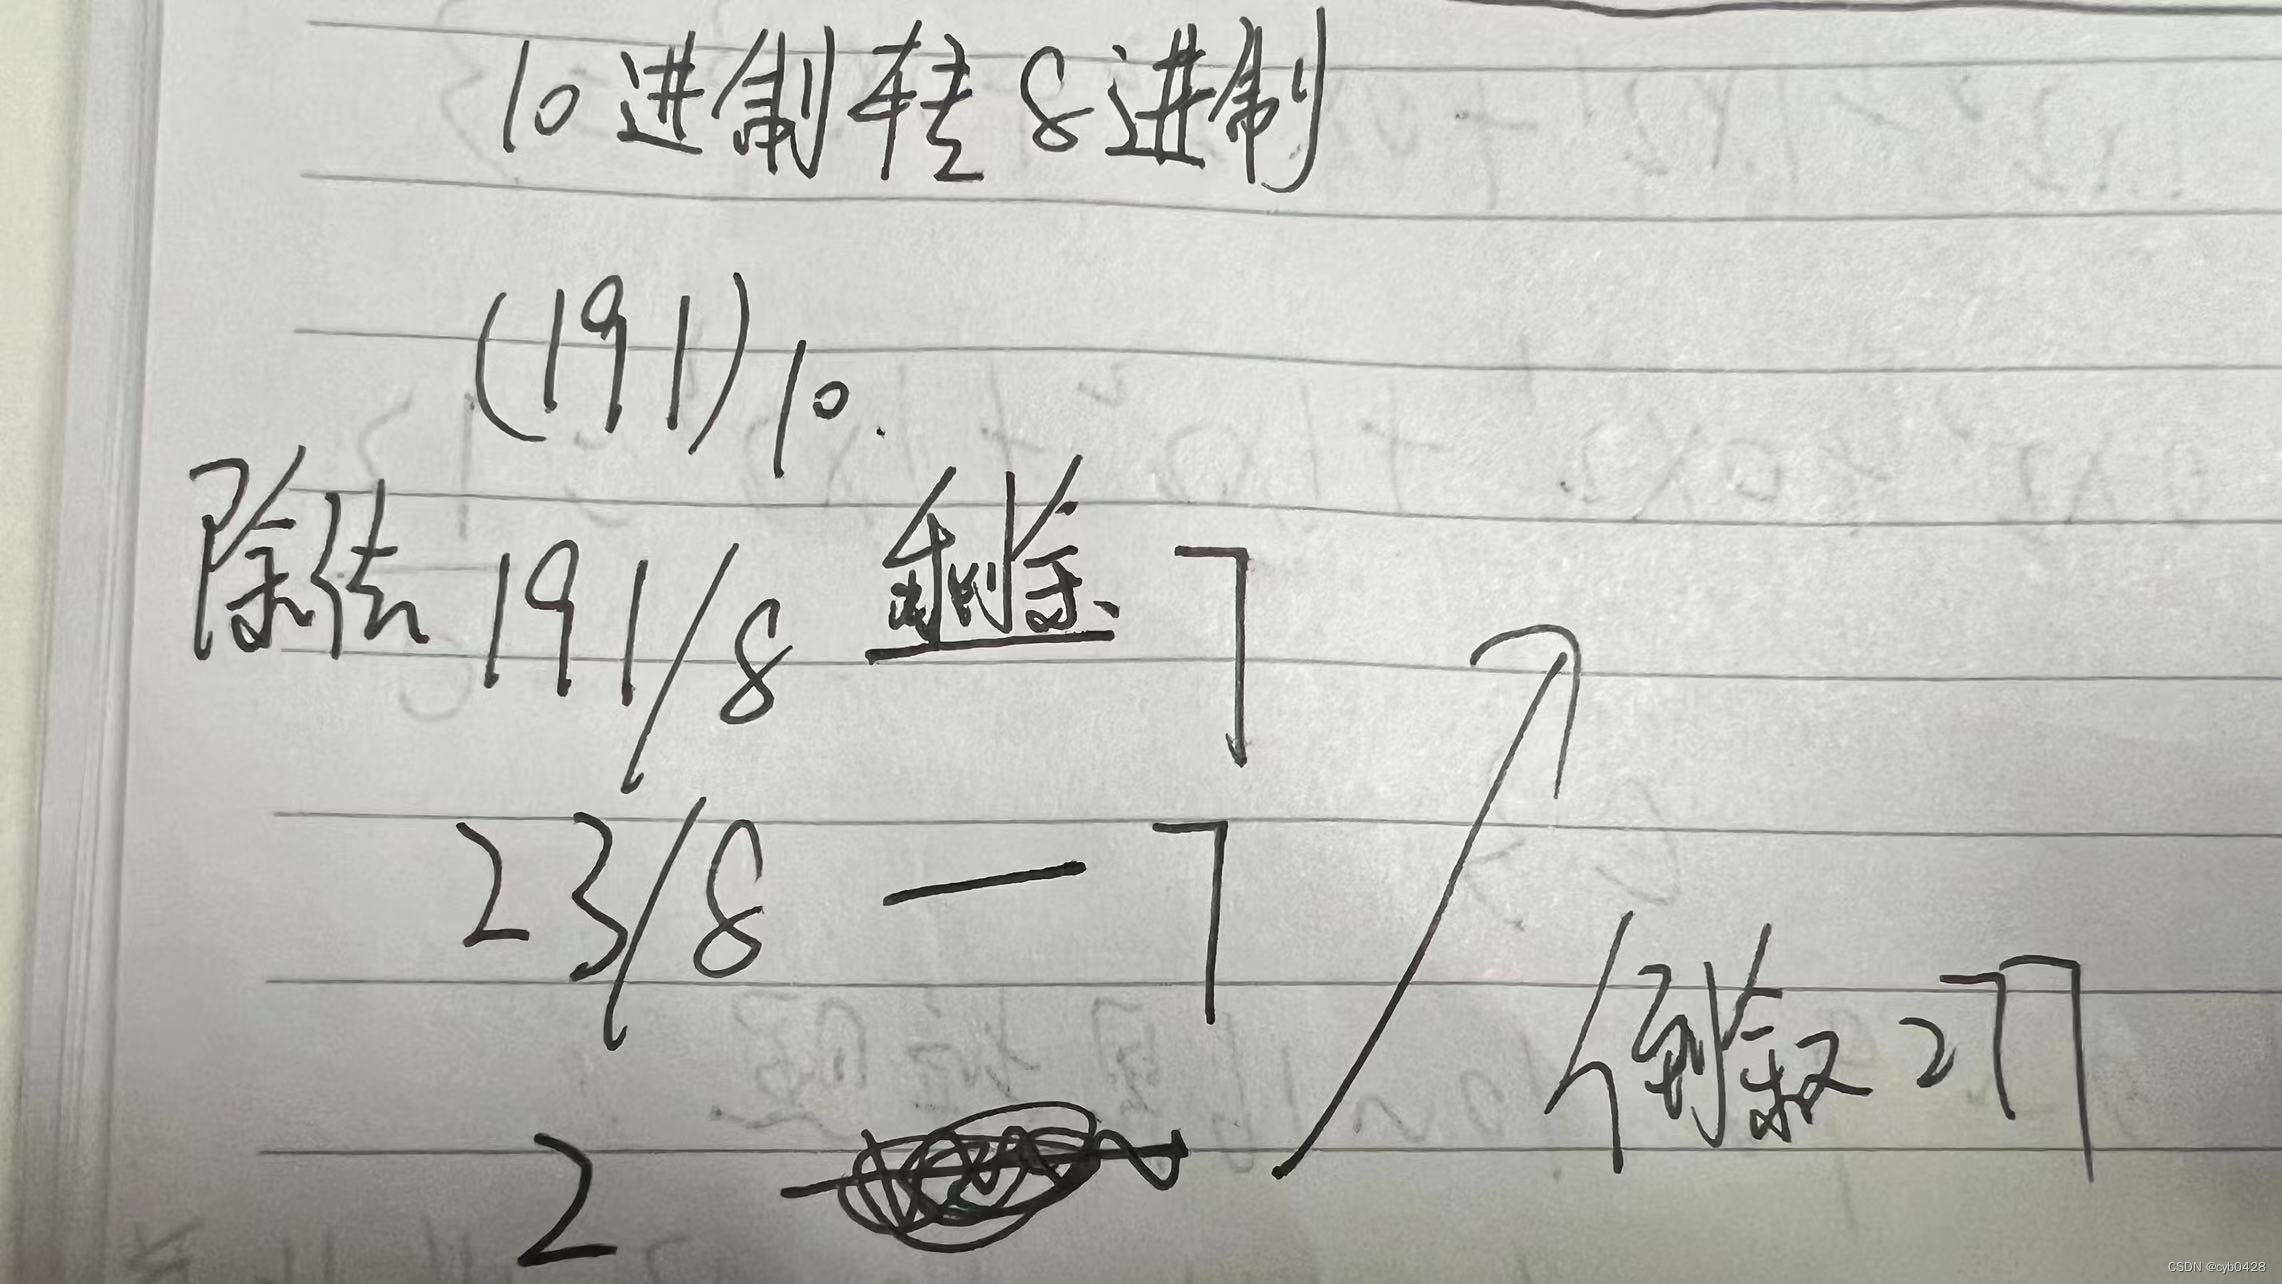 10进制转8进制
(191)10.
除法 191/8 剩余 7
23/8 — 7
倒叙277
2
CSDN @cyb0428